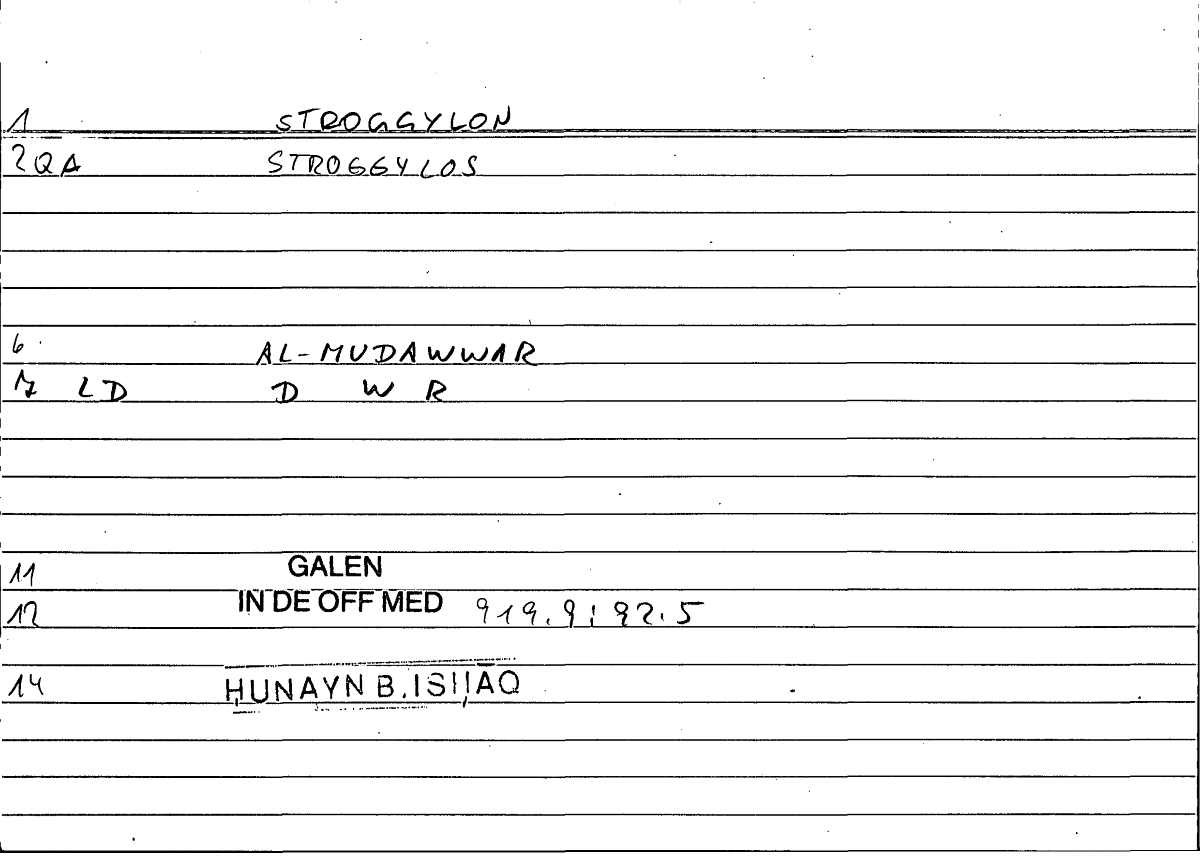 1 STROGGYLON
2QA STROGGYLOS
6 AL-MUDAWWAR
7 LD D W R
11 GALEN
12 IN DE OFF MED 919.9; 92.5
14 ḤUNAYN B. ISḤĀQ